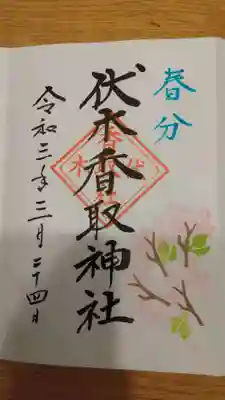 春分
伏木香取神社
令和三年三月二十四日